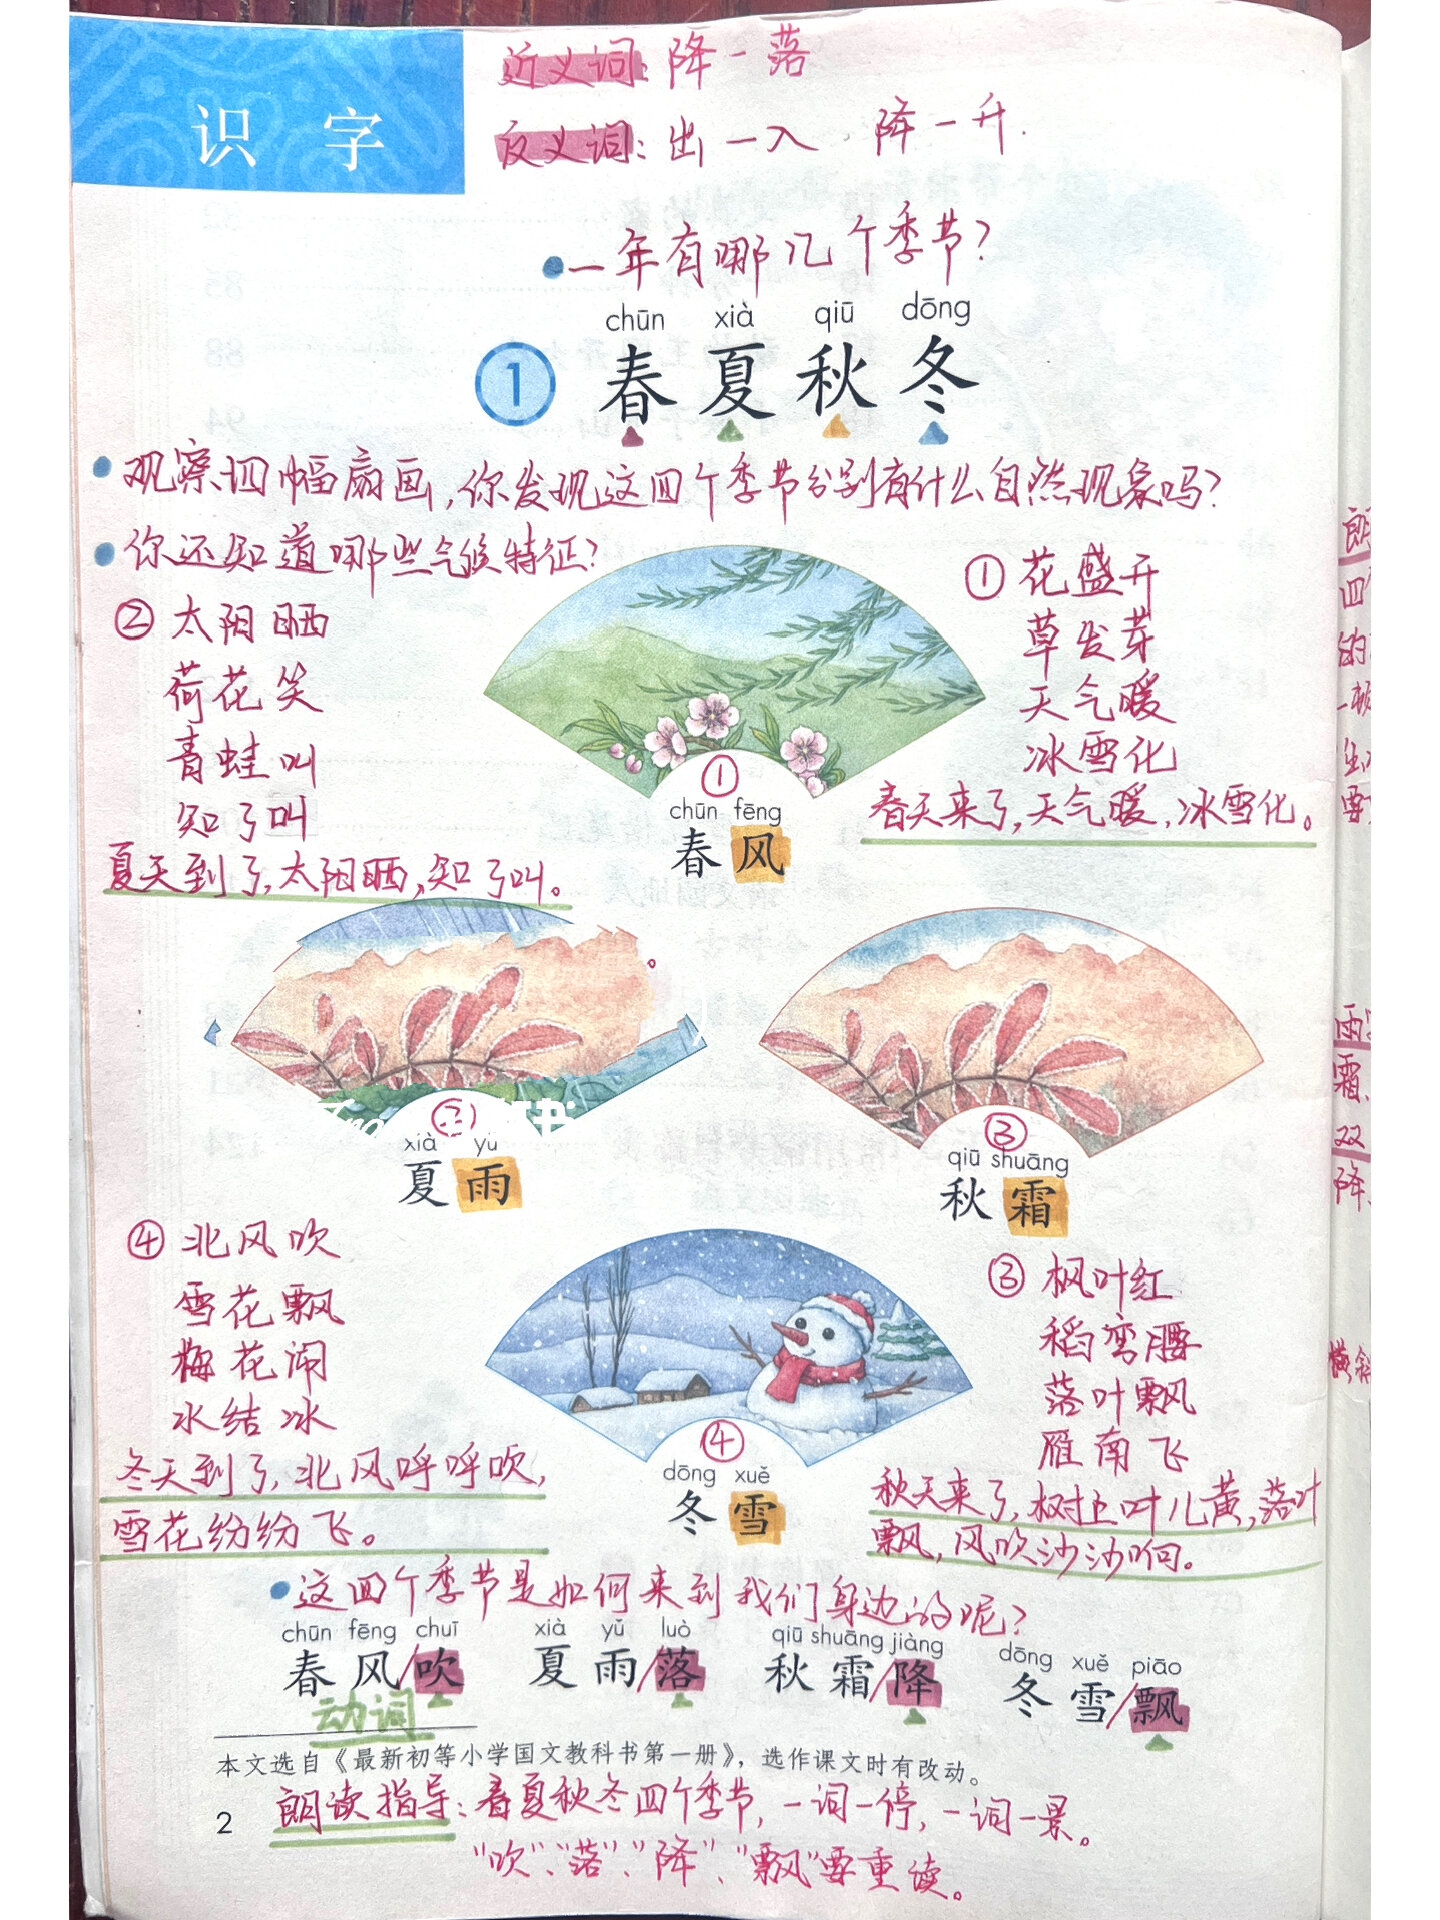 识字
近义词：降一落
反义词：出一入 降一升.
一年有哪几个季节？
chūn xià qiū dōng
1 春夏秋冬
观察四幅扇画，你发现这四个季节分别有什么自然现象吗？
你还知道哪些气候特征？
① 花盛开
草发芽
天气暖
冰雪化
春天来了，天气暖，冰雪化。
② 太阳晒
荷花笑
青蛙叫
知了叫
夏天到了，太阳晒，知了叫。
①
chūn fēng
春风
②
xià yǔ
夏雨
③
qiū shuāng
秋霜
④ 北风吹
雪花飘
梅花闹
水结冰
冬天到了，北风呼呼吹，
雪花纷纷飞。
④
dōng xuě
冬雪
③ 枫叶红
稻弯腰
落叶飘
雁南飞
秋天来了，树上叶儿黄，落叶
飘，风吹沙沙响。
这四个季节是如何来到我们身边的呢？
chūn fēng chuī xià yǔ luò qiū shuāng jiàng dōng xuě piāo
春风/吹 夏雨/落 秋霜/降 冬雪/飘
动词
本文选自《最新初等小学国文教科书第一册》，选作课文时有改动。
2
朗读指导：春夏秋冬四个季节，一词一停，一词一景。
“吹”、“落”、“降”、“飘”要重读。
朗
四
的
一
出
要
雨
霜、
双
降
横斜